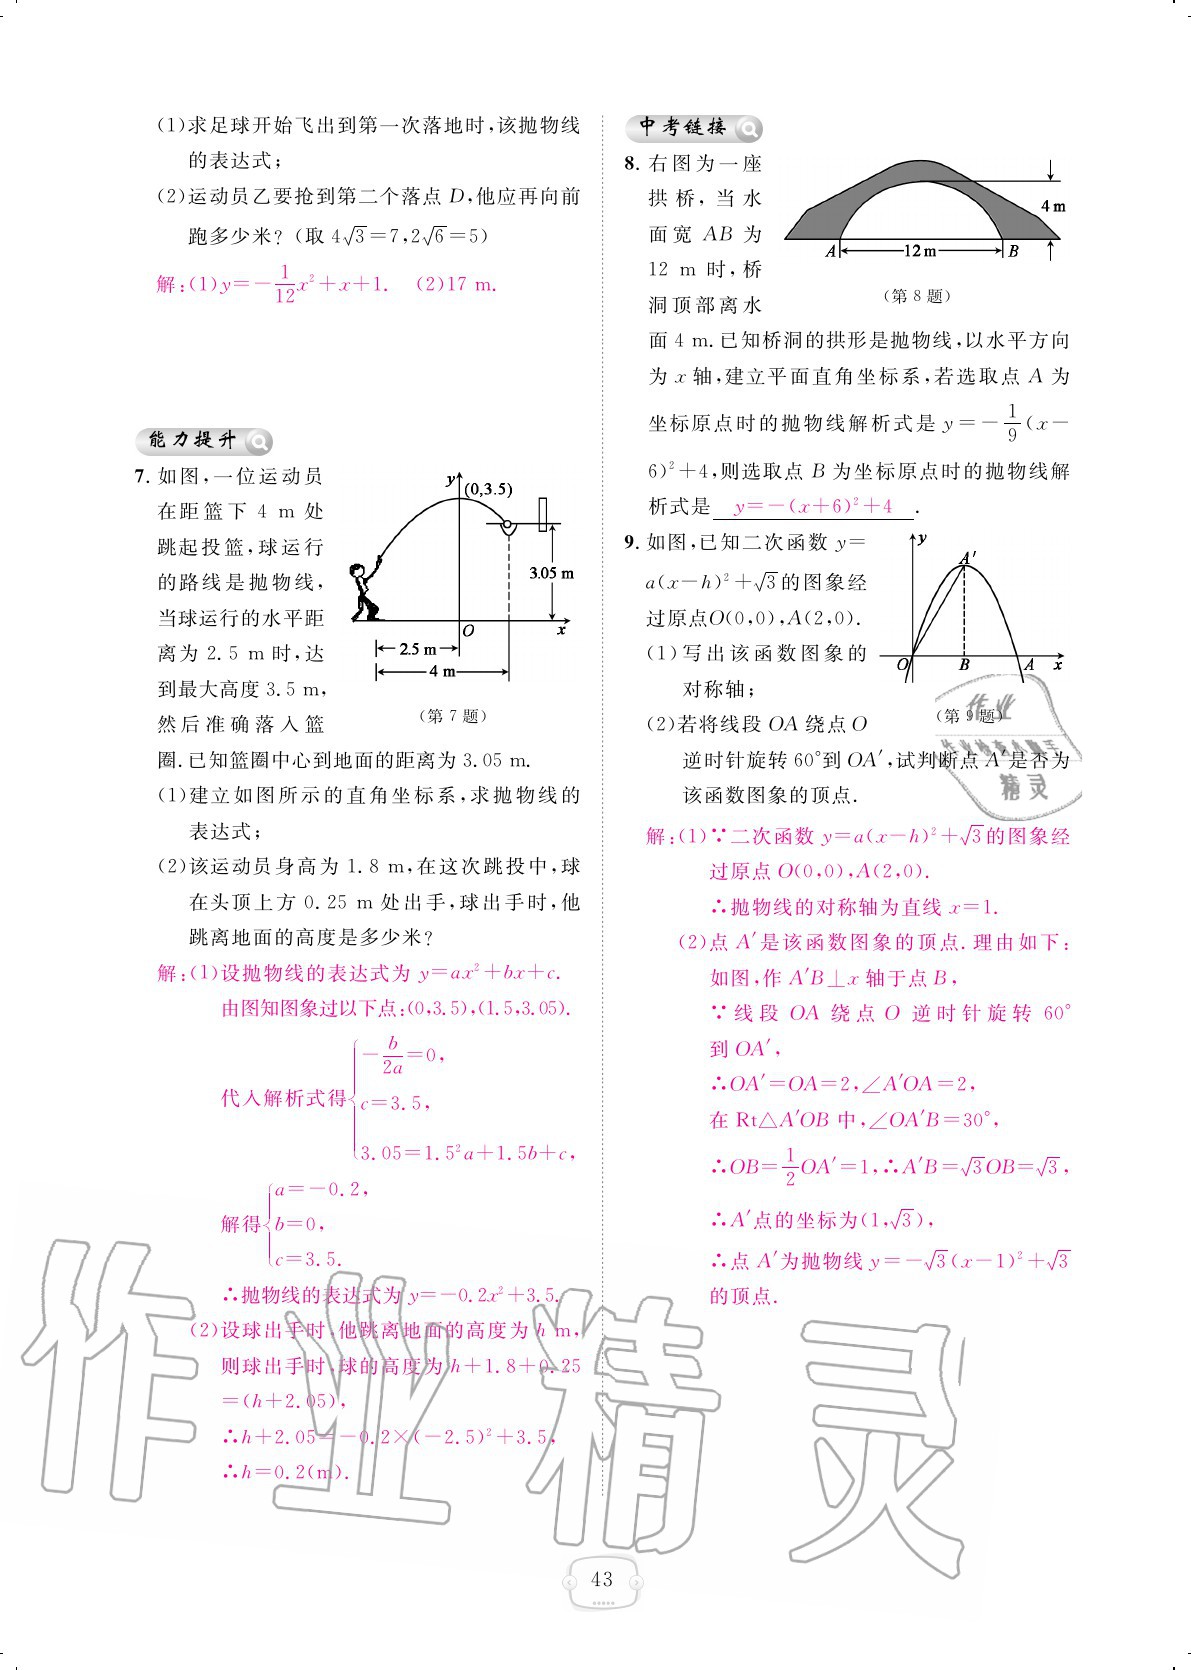 (1)求足球开始飞出到第一次落地时,该抛物线
的表达式;
(2)运动员乙要抢到第二个落点 D,他应再向前
跑多少米?(取 4√3=7,2√6=5)
解:(1)y=-1/12x²+x+1. (2)17 m.
能力提升
7. 如图,一位运动员
在距篮下 4 m 处
跳起投篮,球运行
的路线是抛物线,
当球运行的水平距
离为 2.5 m 时,达
到最大高度 3.5 m,
然后准确落入篮
圈.已知篮圈中心到地面的距离为 3.05 m.
y
(0,3.5)
3.05 m
O
x
2.5 m
4 m
(第 7 题)
(1)建立如图所示的直角坐标系,求抛物线的
表达式;
(2)该运动员身高为 1.8 m,在这次跳投中,球
在头顶上方 0.25 m 处出手,球出手时,他
跳离地面的高度是多少米?
解:(1)设抛物线的表达式为 y=ax²+bx+c.
由图知图象过以下点:(0,3.5),(1.5,3.05).
-b/2a=0,
代入解析式得{c=3.5,
3.05=1.5²a+1.5b+c,
a=-0.2,
解得{b=0,
c=3.5.
∴抛物线的表达式为 y=-0.2x²+3.5.
(2)设球出手时,他跳离地面的高度为 h m,
则球出手时,球的高度为 h+1.8+0.25
=(h+2.05),
∴h+2.05=-0.2×(-2.5)²+3.5,
∴h=0.2(m).
中考链接
8. 右图为一座
拱桥,当水
面宽 AB 为
12 m 时,桥
洞顶部离水
面 4 m.已知桥洞的拱形是抛物线,以水平方向
为 x 轴,建立平面直角坐标系,若选取点 A 为
坐标原点时的抛物线解析式是 y=-1/9(x-
6)²+4,则选取点 B 为坐标原点时的抛物线解
析式是 y=-(x+6)²+4 .
4 m
A
12 m
B
(第 8 题)
9. 如图,已知二次函数 y=
a(x-h)²+√3的图象经
过原点O(0,0),A(2,0).
(1)写出该函数图象的
对称轴;
(2)若将线段 OA 绕点 O
逆时针旋转 60°到 OA′,试判断点 A′是否为
该函数图象的顶点.
y
A′
O
B
A
x
(第 9 题)
解:(1)∵二次函数 y=a(x-h)²+√3的图象经
过原点 O(0,0),A(2,0).
∴抛物线的对称轴为直线 x=1.
(2)点 A′是该函数图象的顶点.理由如下:
如图,作 A′B⊥x 轴于点 B,
∵线段 OA 绕点 O 逆时针旋转 60°
到 OA′,
∴OA′=OA=2,∠A′OA=2,
在 Rt△A′OB 中,∠OA′B=30°,
∴OB=1/2OA′=1,∴A′B=√3OB=√3,
∴A′点的坐标为(1,√3),
∴点 A′为抛物线 y=-√3(x-1)²+√3
的顶点.
作业
精灵
作业精灵
43